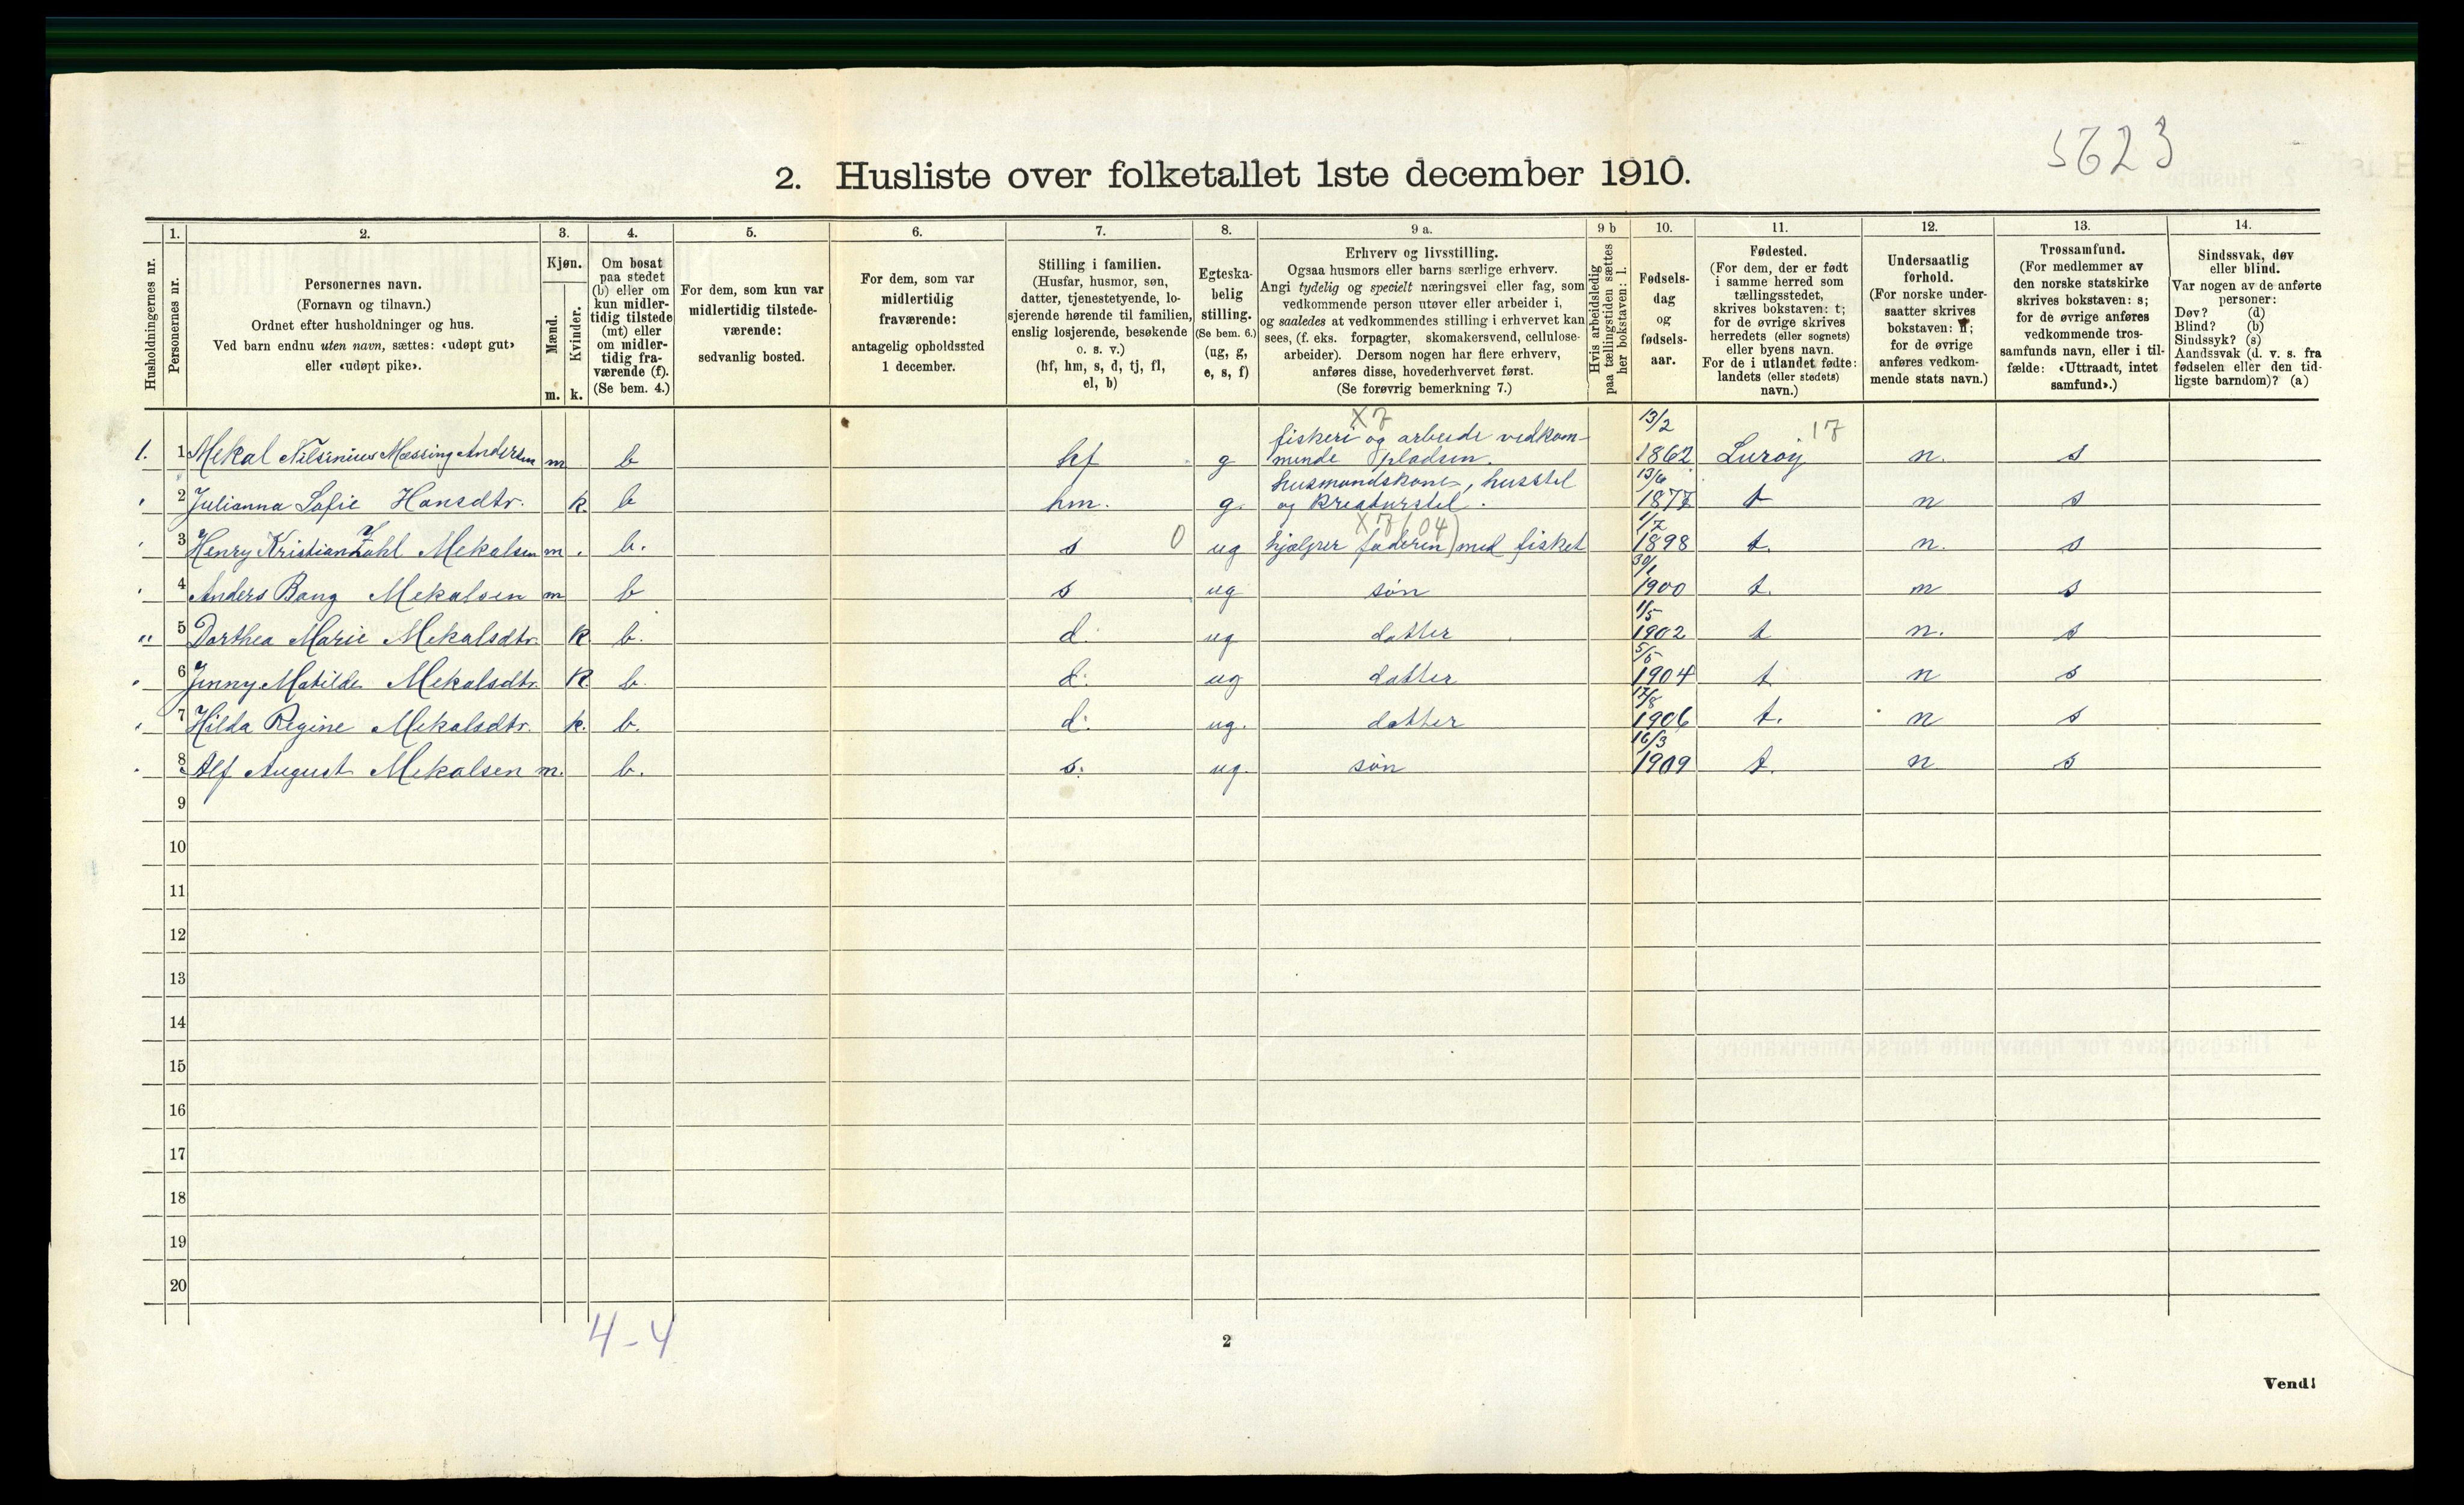 5623
2. Husliste over folketallet 1ste december 1910.
Husholdningernes nr.
1.
Personernes nr.
2.
Personernes navn.
(Fornavn og tilnavn.)
Ordnet efter husholdninger og hus.
Ved barn endnu uten navn, sættes: «udøpt gut»
eller «udøpt pike».
3.
Kjøn.
Mænd.
Kvinder.
m. k.
4.
Om bosat
paa stedet
(b) eller om
kun midler-
tidig tilstede
(mt) eller
om midler-
tidig fra-
værende (f).
(Se bem. 4.)
5.
For dem, som kun var
midlertidig tilstede-
værende:
sedvanlig bosted.
6.
For dem, som var
midlertidig
fraværende:
antagelig opholdssted
1 december.
7.
Stilling i familien.
(Husfar, husmor, søn,
datter, tjenestetyende, lo-
sjerende hørende til familien,
enslig losjerende, besøkende
o. s. v.)
(hf, hm, s, d, tj, fl,
el, b)
8.
Egteska-
belig
stilling.
(Se bem. 6.)
(ug, g,
e, s, f)
9 a.
Erhverv og livsstilling.
Ogsaa husmors eller barns særlige erhverv.
Angi tydelig og specielt næringsvei eller fag, som
vedkommende person utøver eller arbeider i,
og saaledes at vedkommendes stilling i erhvervet kan
sees, (f. eks. forpagter, skomakersvend, cellulose-
arbeider). Dersom nogen har flere erhverv,
anføres disse, hovederhvervet først.
(Se forøvrig bemerkning 7.)
9 b
Hvis arbeidsledig
paa tællingstiden sættes
her bokstaven: l.
10.
Fødsels-
dag
og
fødsels-
aar.
11.
Fødested.
(For dem, der er født
i samme herred som
tællingsstedet,
skrives bokstaven: t;
for de øvrige skrives
herredets (eller sognets)
eller byens navn.
For de i utlandet fødte:
landets (eller stedets)
navn.)
12.
Undersaatlig
forhold.
(For norske under-
saatter skrives
bokstaven: n;
for de øvrige
anføres vedkom-
mende stats navn.)
13.
Trossamfund.
(For medlemmer av
den norske statskirke
skrives bokstaven: s;
for de øvrige anføres
vedkommende tros-
samfunds navn, eller i til-
fælde: «Uttraadt, intet
samfund».)
14.
Sindssvak, døv
eller blind.
Var nogen av de anførte
personer:
Døv? (d)
Blind? (b)
Sindssyk? (s)
Aandssvak (d. v. s. fra
fødselen eller den tid-
ligste barndom)? (a)
X7 13/2 17
fiskeri og arbeide vedkom-
1. 1 Mekal Nilsinius Messing Andersen m b hf g mende pladsen. 1862 Lurøy n. s
husmandskone, husstel 13/6
2 Julianna Sofie Hansdtr. k. b hm. g. og kreaturstel. 1877 t n s
X7(04) 1/7
3 Henry Kristian Zahl Mekalsen m. b. s 0 ug hjælper faderen) med fisket 1898 t. n. s
30/1
4 Anders Bang Mekalsen m b s ug søn 1900 t. n s
1/5
" 5 Dorthea Marie Mekalsdtr. k. b. d. ug datter 1902 t n. s
5/5
6 Jenny Matilde Mekalsdtr. k. b. d. ug datter 1904 t n s
17/8
7 Hilda Regine Mekalsdtr. k. b. d. ug. datter 1906 t. n s
16/3
8 Alf August Mekalsen m. b. s. ug. søn 1909 t. n s
9
10
11
12
13
14
15
16
17
18
19
20
4-4
2
Vend!